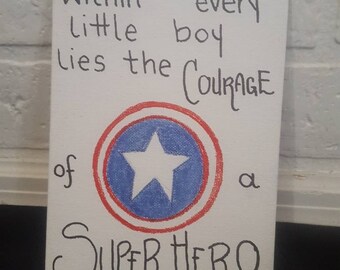 Within every
little boy
lies the COURAGE
of a
SUPER HERO